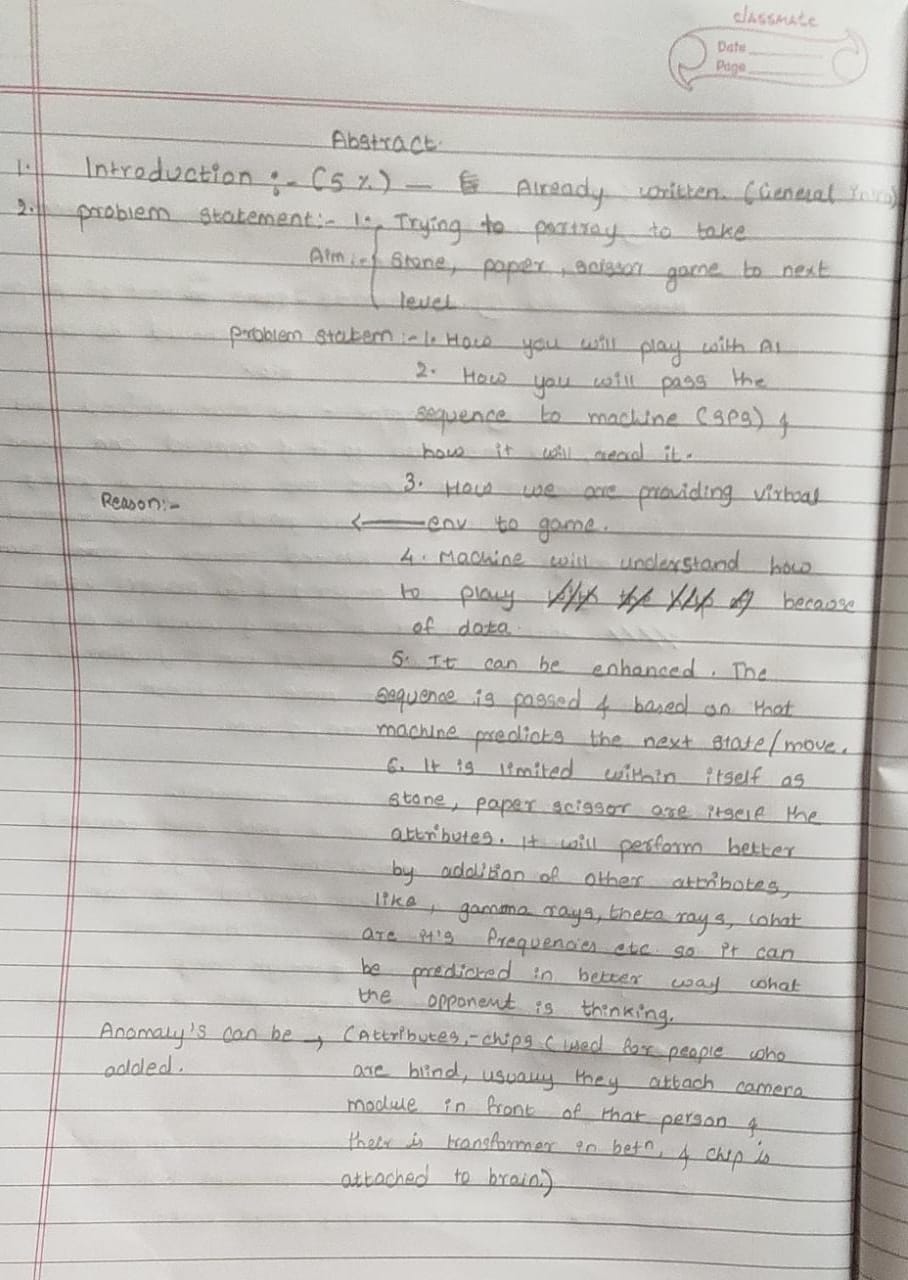 classmate
Date
Page
Abstract.
1. Introduction :- (5 %) - Already written. (General Intro)
2. problem statement:- 1. Trying to portray to take
Aim :- { Stone, paper, scissor game to next
level.
Problem statem :- 1. How you will play with AI
2. How you will pass the
sequence to machine (SPS) &
how it will read it.
3. How we are providing virtual
Reason:-
← env to game.
4. Machine will understand how
to play because
of data.
5. It can be enhanced. The
sequence is passed & based on that
machine predicts the next state/move.
6. It is limited within itself as
stone, paper scissor are itself the
attributes. It will perform better
by addition of other attributes,
like, gamma rays, theta rays, what
are it's frequencies etc. so it can
be predicted in better way what
the opponent is thinking.
Anomaly's can be → (Attributes,- chips (used for people who
added. are blind, usually they attach camera
module in front of that person &
there is transformer in betn, & chip is
attached to brain.)